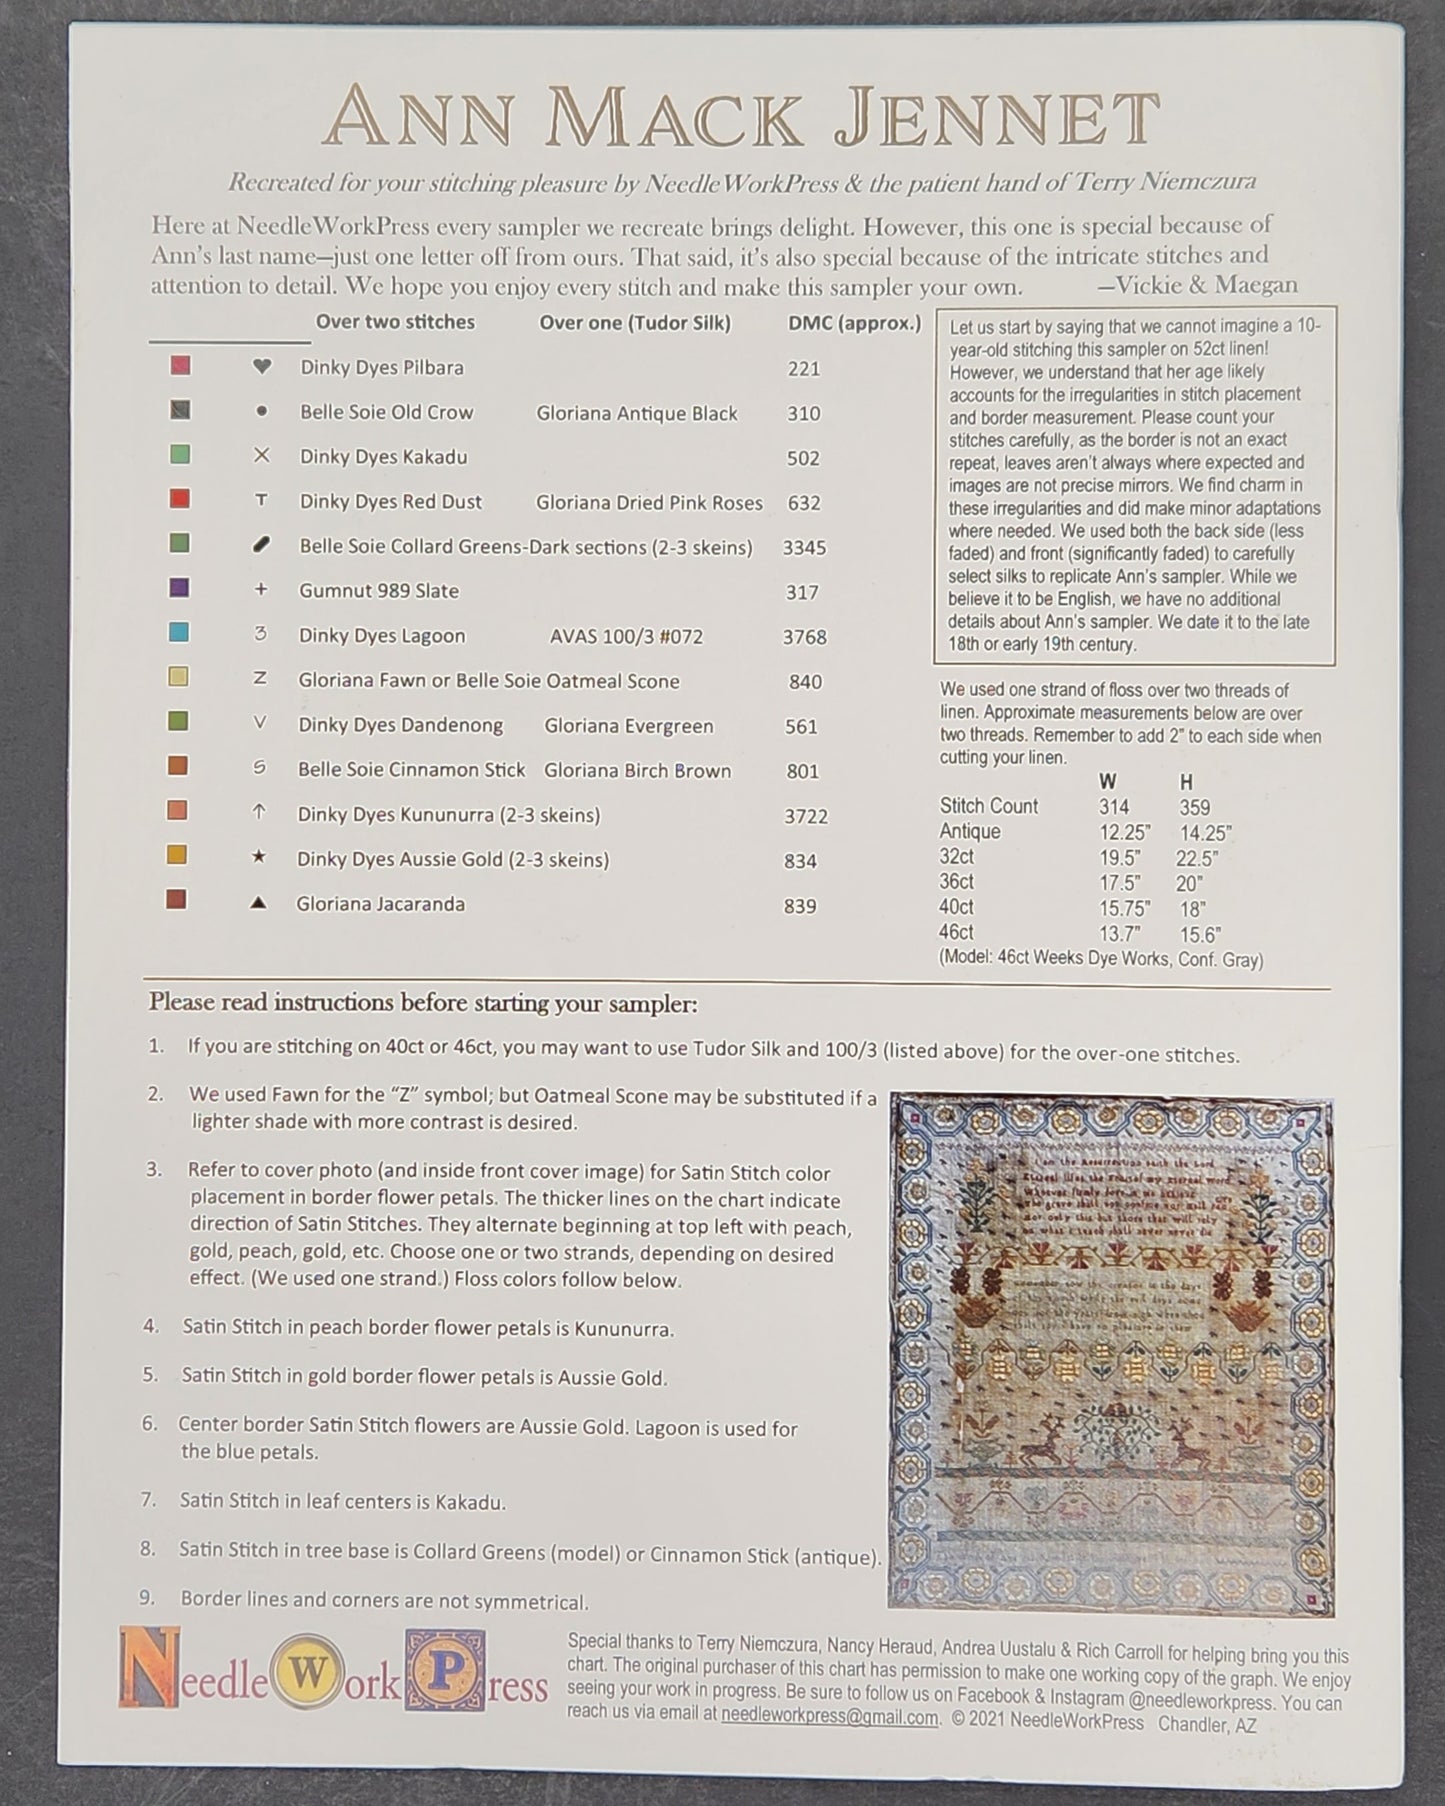 ANN MACK JENNET
Recreated for your stitching pleasure by NeedleWorkPress & the patient hand of Terry Niemczura
Here at NeedleWorkPress every sampler we recreate brings delight. However, this one is special because of
Ann's last name—just one letter off from ours. That said, it's also special because of the intricate stitches and
attention to detail. We hope you enjoy every stitch and make this sampler your own. —Vickie & Maegan
Over two stitches Over one (Tudor Silk) DMC (approx.)
♥ Dinky Dyes Pilbara 221
● Belle Soie Old Crow Gloriana Antique Black 310
X Dinky Dyes Kakadu 502
T Dinky Dyes Red Dust Gloriana Dried Pink Roses 632
Belle Soie Collard Greens-Dark sections (2-3 skeins) 3345
+ Gumnut 989 Slate 317
3 Dinky Dyes Lagoon AVAS 100/3 #072 3768
Z Gloriana Fawn or Belle Soie Oatmeal Scone 840
V Dinky Dyes Dandenong Gloriana Evergreen 561
S Belle Soie Cinnamon Stick Gloriana Birch Brown 801
↑ Dinky Dyes Kununurra (2-3 skeins) 3722
★ Dinky Dyes Aussie Gold (2-3 skeins) 834
▲ Gloriana Jacaranda 839
Let us start by saying that we cannot imagine a 10-
year-old stitching this sampler on 52ct linen!
However, we understand that her age likely
accounts for the irregularities in stitch placement
and border measurement. Please count your
stitches carefully, as the border is not an exact
repeat, leaves aren't always where expected and
images are not precise mirrors. We find charm in
these irregularities and did make minor adaptations
where needed. We used both the back side (less
faded) and front (significantly faded) to carefully
select silks to replicate Ann's sampler. While we
believe it to be English, we have no additional
details about Ann's sampler. We date it to the late
18th or early 19th century.
We used one strand of floss over two threads of
linen. Approximate measurements below are over
two threads. Remember to add 2" to each side when
cutting your linen.
W H
Stitch Count 314 359
Antique 12.25" 14.25"
32ct 19.5" 22.5"
36ct 17.5" 20"
40ct 15.75" 18"
46ct 13.7" 15.6"
(Model: 46ct Weeks Dye Works, Conf. Gray)
Please read instructions before starting your sampler:
1. If you are stitching on 40ct or 46ct, you may want to use Tudor Silk and 100/3 (listed above) for the over-one stitches.
2. We used Fawn for the "Z" symbol; but Oatmeal Scone may be substituted if a
lighter shade with more contrast is desired.
3. Refer to cover photo (and inside front cover image) for Satin Stitch color
placement in border flower petals. The thicker lines on the chart indicate
direction of Satin Stitches. They alternate beginning at top left with peach,
gold, peach, gold, etc. Choose one or two strands, depending on desired
effect. (We used one strand.) Floss colors follow below.
4. Satin Stitch in peach border flower petals is Kununurra.
5. Satin Stitch in gold border flower petals is Aussie Gold.
6. Center border Satin Stitch flowers are Aussie Gold. Lagoon is used for
the blue petals.
7. Satin Stitch in leaf centers is Kakadu.
8. Satin Stitch in tree base is Collard Greens (model) or Cinnamon Stick (antique).
9. Border lines and corners are not symmetrical.
I am the Resurrection saith the Lord
NeedleWorkPress
Special thanks to Terry Niemczura, Nancy Heraud, Andrea Uustalu & Rich Carroll for helping bring you this
chart. The original purchaser of this chart has permission to make one working copy of the graph. We enjoy
seeing your work in progress. Be sure to follow us on Facebook & Instagram @needleworkpress. You can
reach us via email at needleworkpress@gmail.com. © 2021 NeedleWorkPress Chandler, AZ